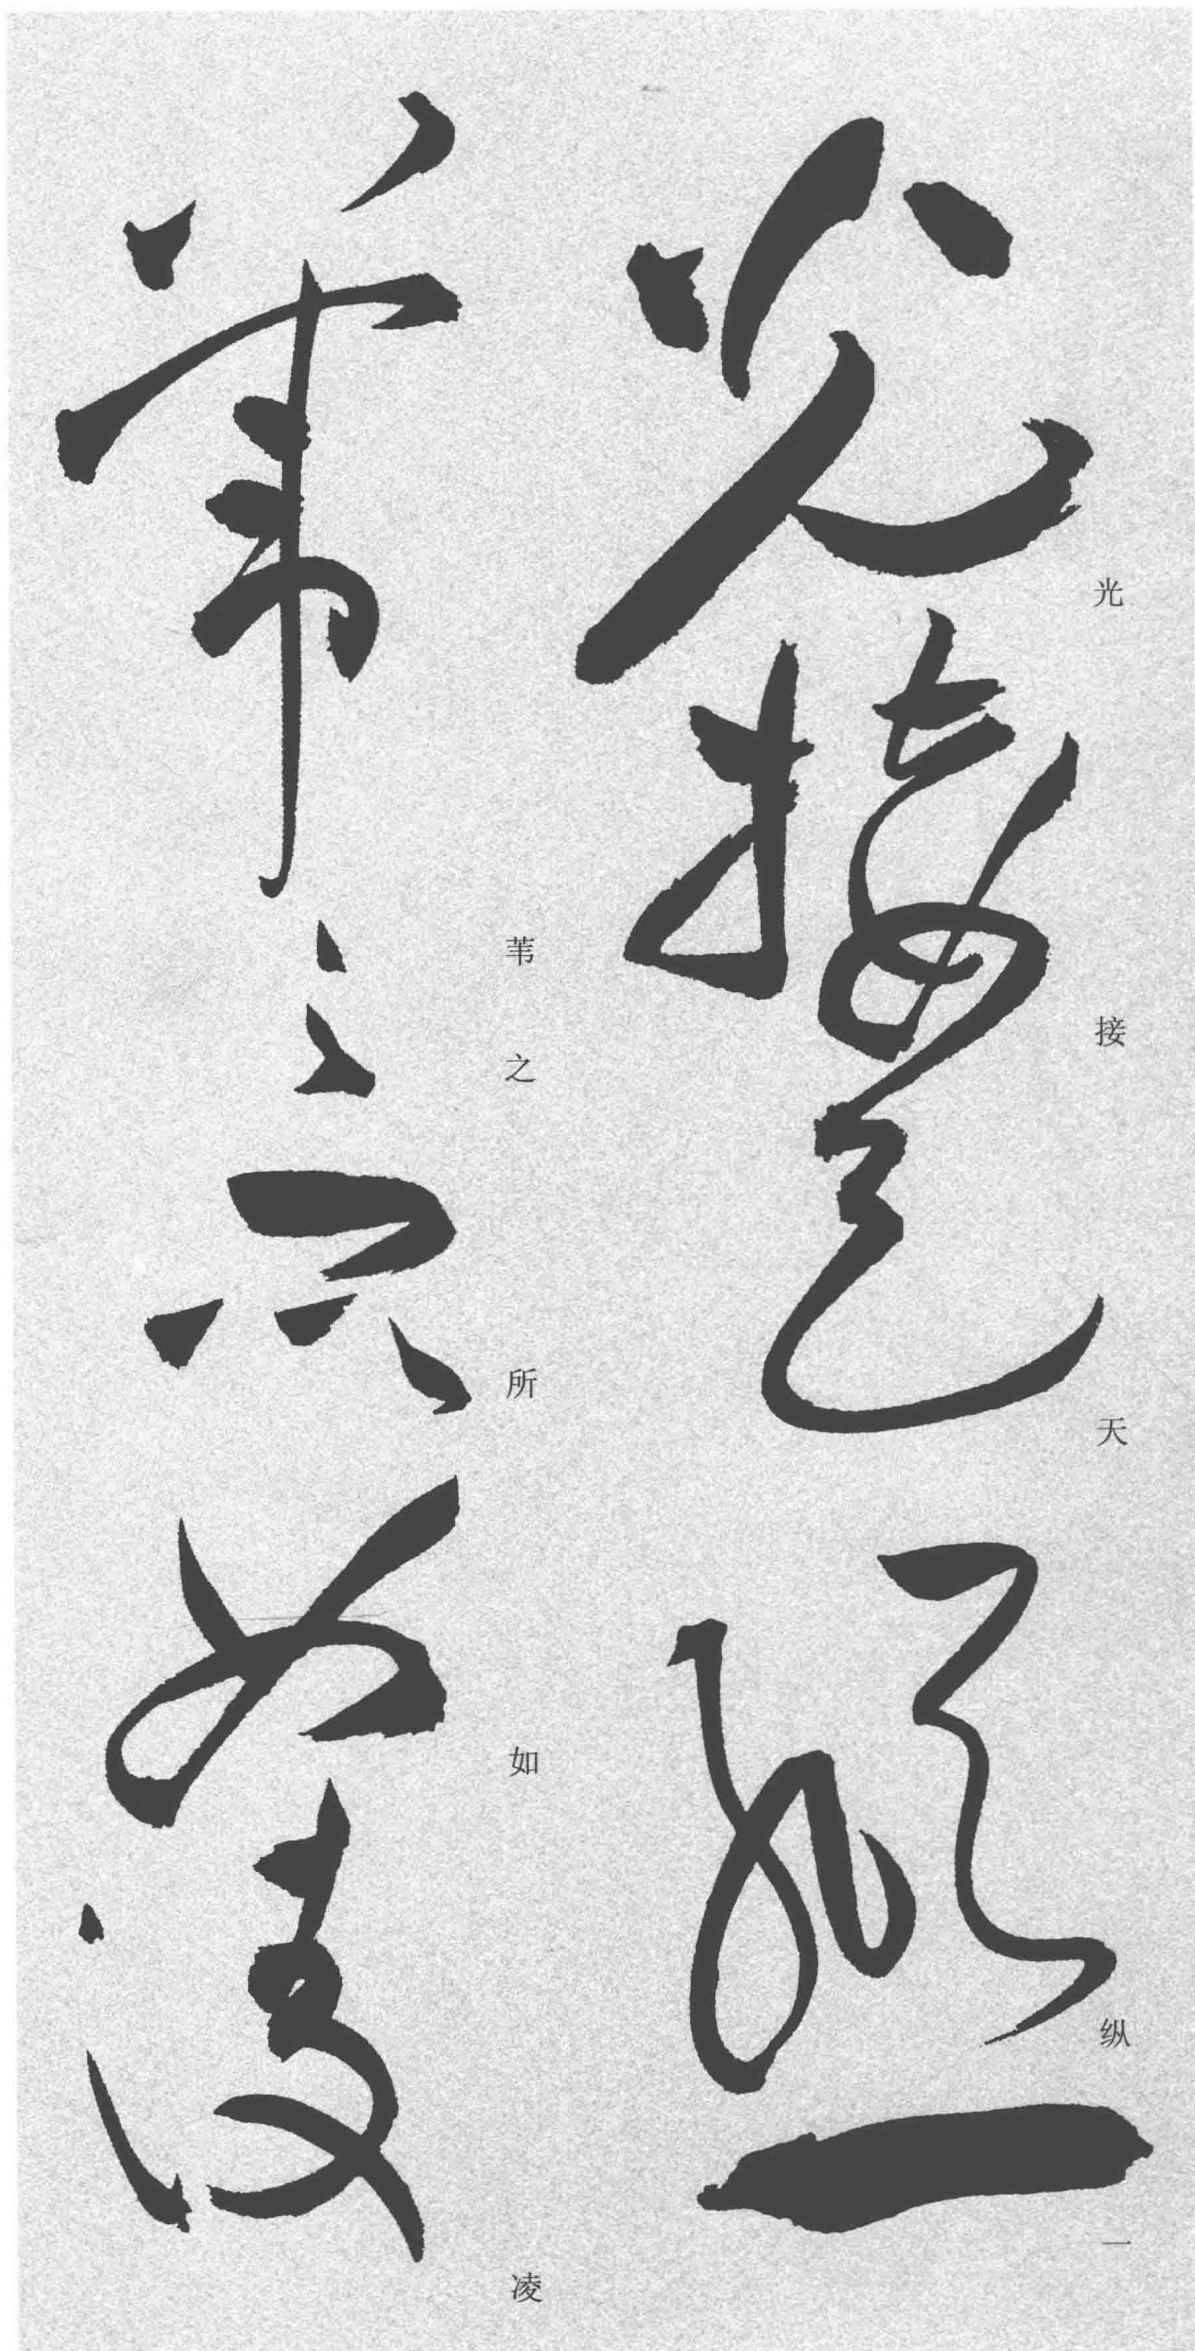 光接天纵一
苇之所如凌